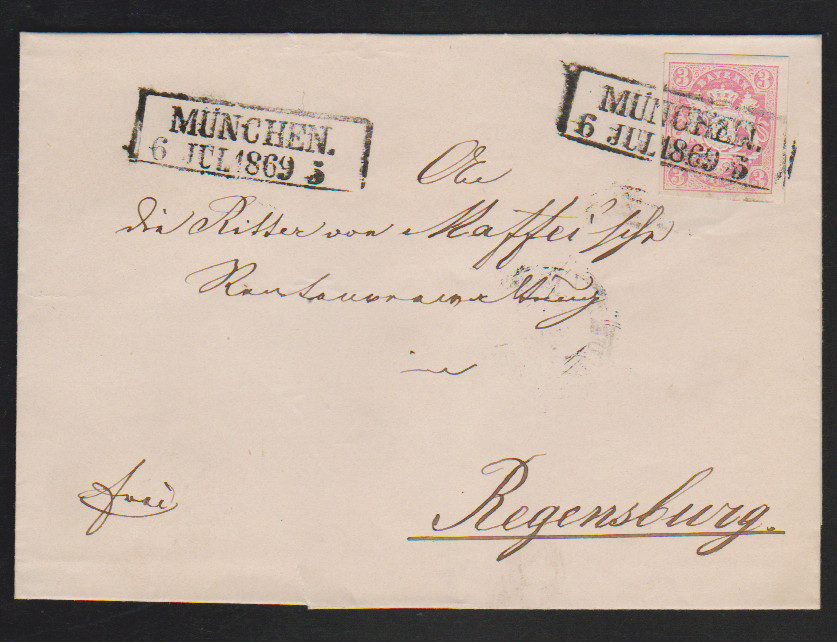 MÜNCHEN.
6 JUL 1869 5
3 BAYERN 3
MÜNCHEN.
6 JUL 1869 5
3 3
An
die Ritter von Maffei'sche
Rentenverwaltung
in
frei
Regensburg.